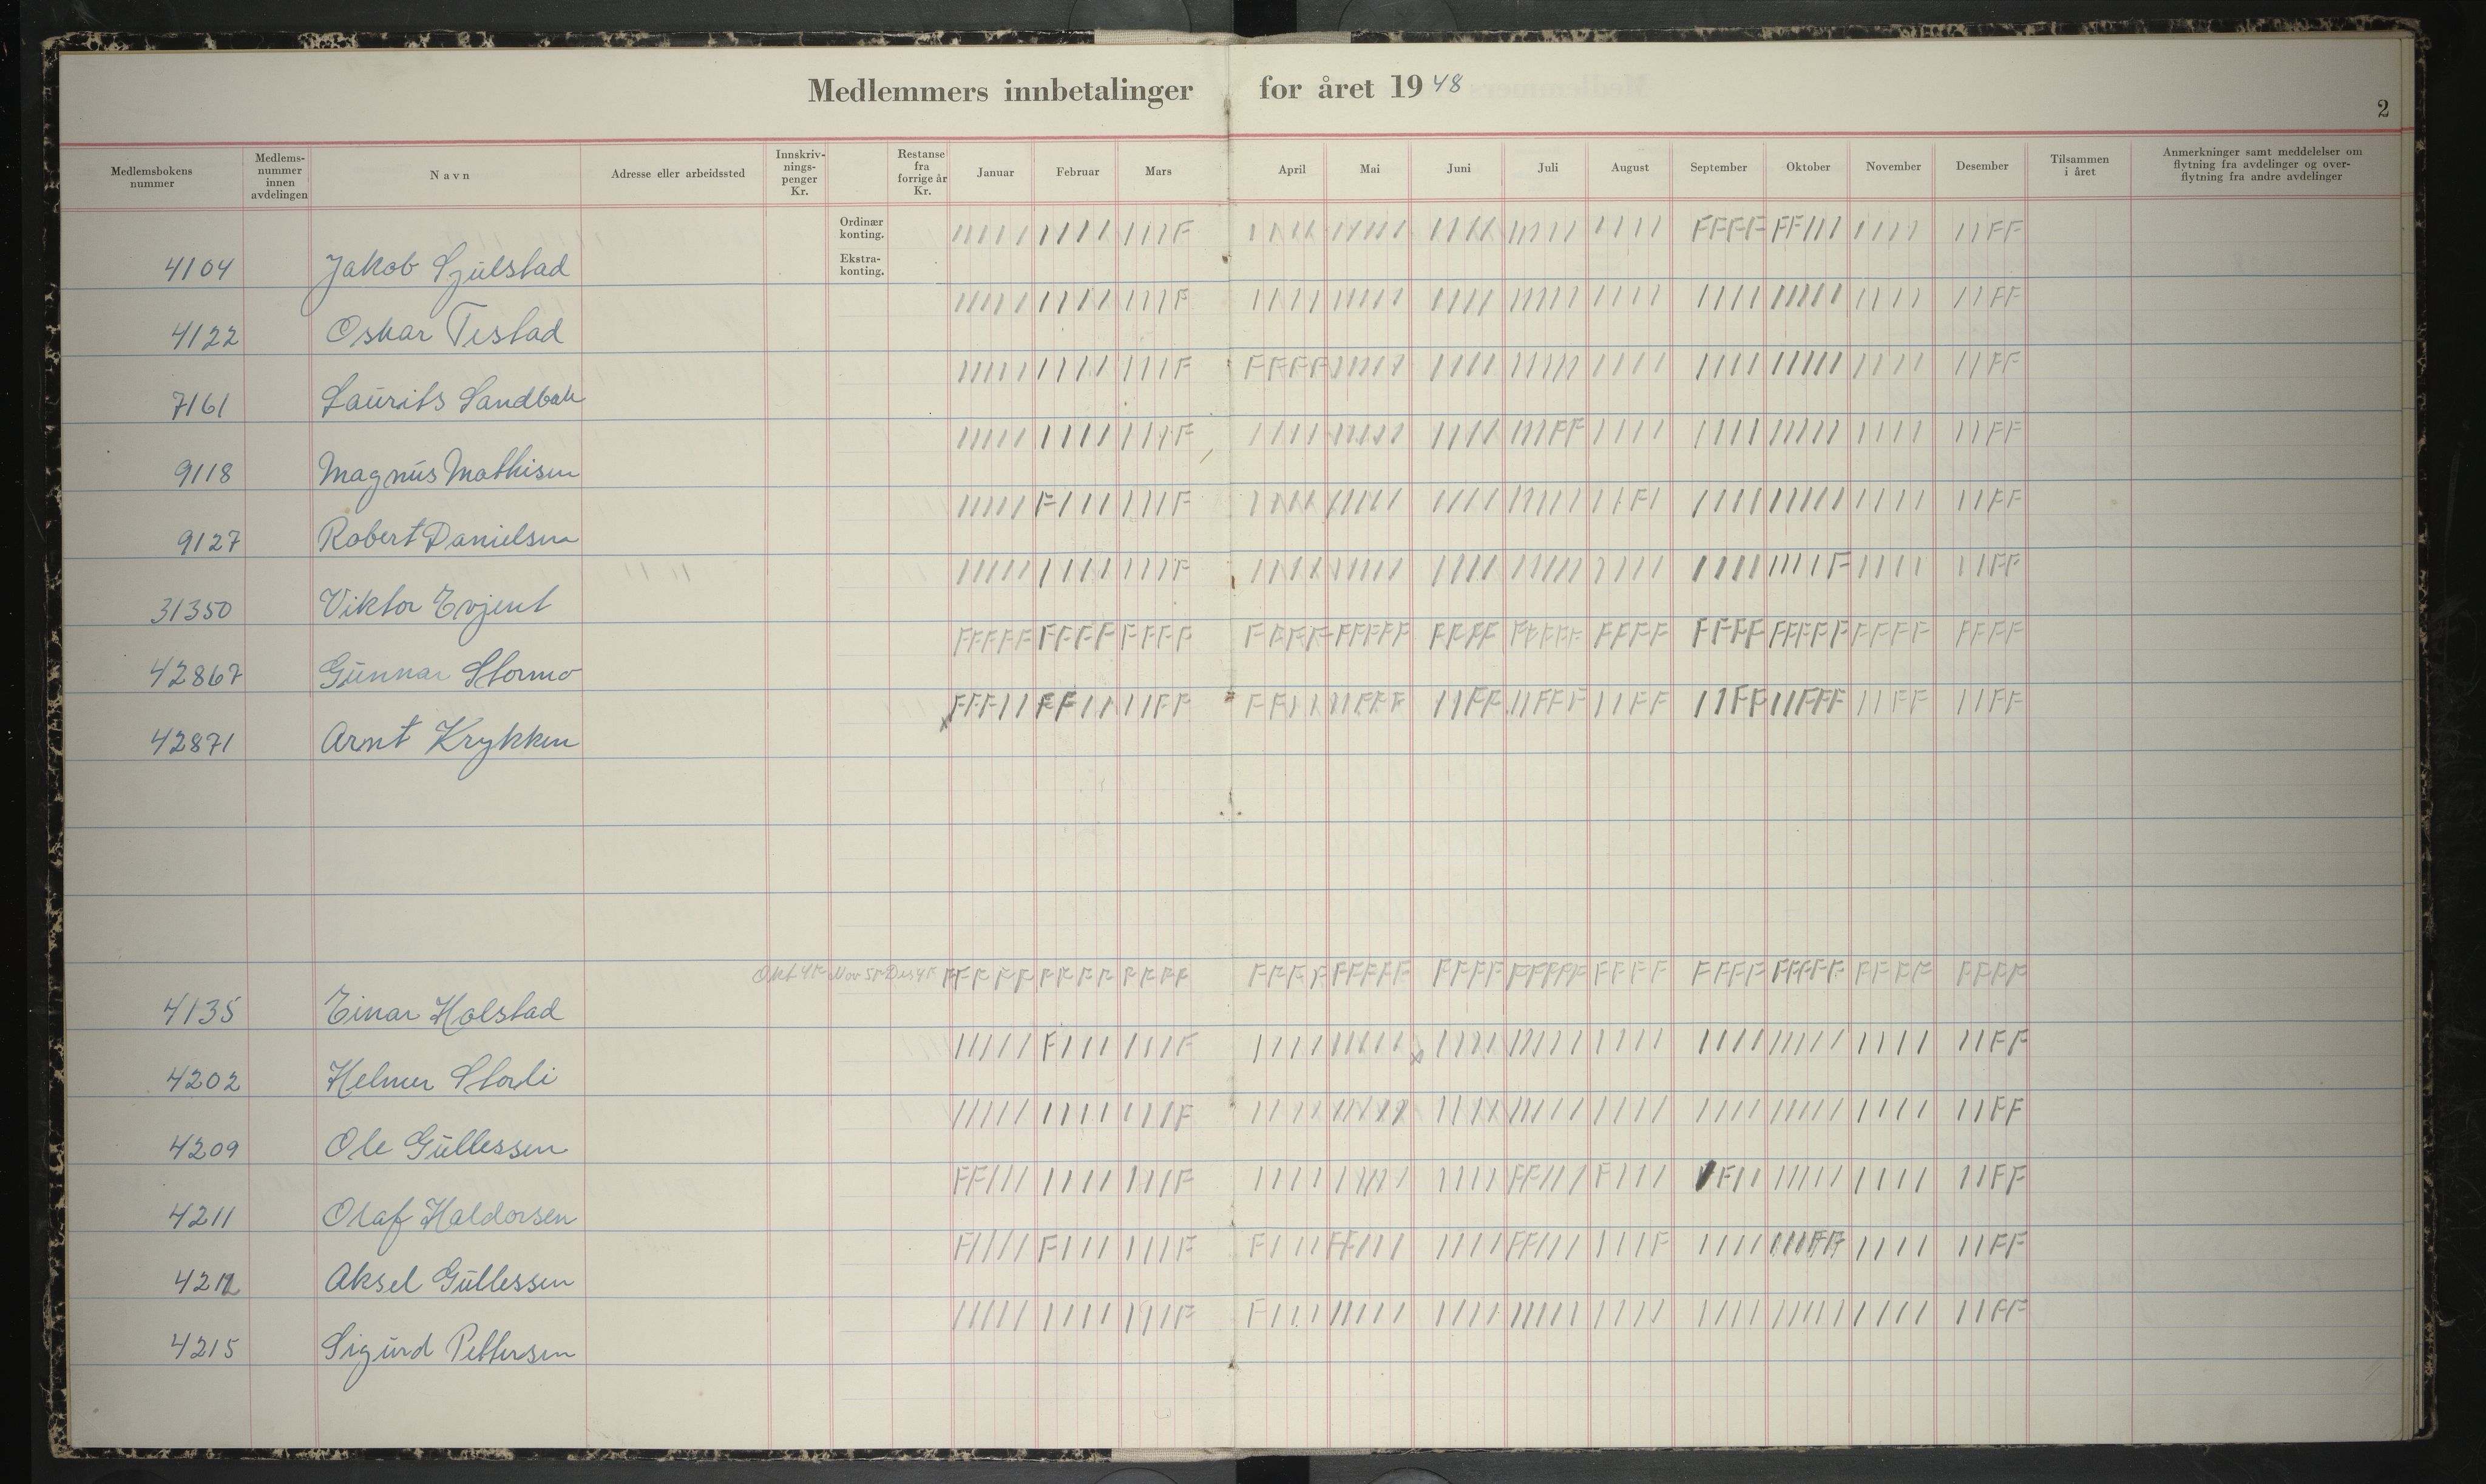 Medlemmers innbetalinger for året 1948
2
Medlemsbokens nummer
Medlems-nummer innen avdelingen
Navn
Adresse eller arbeidssted
Innskriv-nings-penger Kr.
Restanse fra forrige år Kr.
Januar
Februar
Mars
April
Mai
Juni
Juli
August
September
Oktober
November
Desember
Tilsammen i året
Anmerkninger samt meddelelser om flytning fra avdelinger og over-flytning fra andre avdelinger
Ordinær konting. ///// //// ///F //// ///// //// ///// //// FFFF FF/// //// //FF
4104 Jakob Sjulstad Ekstra-konting.
///// //// ///F //// ///// //// ///// //// //// ///// //// //FF
4122 Oskar Testad
///// //// ///F FFFF ///// //// ///// //// //// ///// //// //FF
7161 Laurits Sandbak
///// //// ///F //// ///// //// ///FF //// //// ///// //// //FF
9118 Magnus Mathisen
///// F/// ///F //// ///// //// ///// //F/ //// ///// //// //FF
9127 Robert Danielsen
///// //// ///F //// ///// //// ///// //// //// ////F //// //FF
31350 Viktor Evjent
FFFFF FFFF FFFF FFFF FFFFF FFFF FFFFF FFFF FFFF FFFFF FFFF FFFF
42867 Gunnar Stormo
x FFF// FF// //FF FF// //FFF //FF //FFF //FF //FF //FFF //FF //FF
42871 Arnt Krykken
Okt 4F Nov 5F Des 4F FFFFF FFFF FFFF FFFF FFFFF FFFF FFFFF FFFF FFFF FFFFF FFFF FFFF
4135 Einar Holstad
///// F/// ///F //// ///// x //// ///// //// //// ///// //// //FF
4202 Helmer Storli
///// //// ///F //// ///// //// ///// //// //// ///// //// //FF
4209 Ole Gullessen
FF/// //// ///F //// ///// //// FF/// F/// /F// ///// //// //FF
4211 Olaf Haldorsen
F//// F/// ///F F/// FF/// //// FF/// ///F //// ///FF //// //FF
4212 Aksel Gullessen
///// //// ///F F/// ///// //// ///// //// //// ///// //// //FF
4215 Sigurd Pettersen